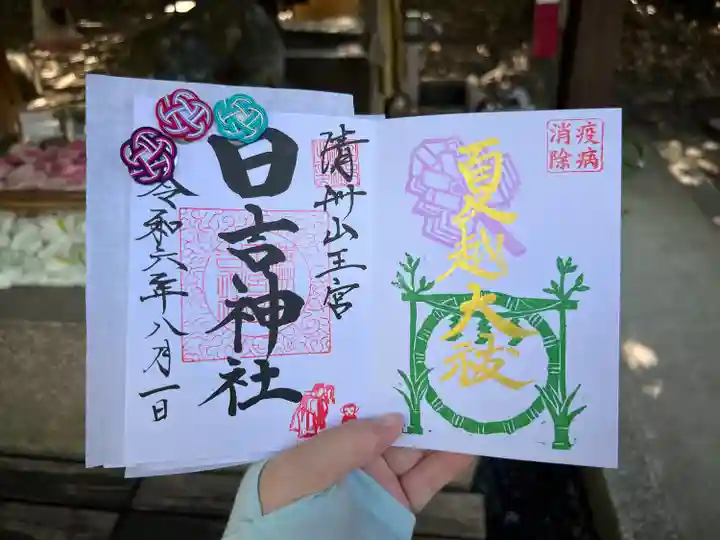 清洲山王宮
日吉神社
令和六年八月一日
疫病
消除
夏越大祓